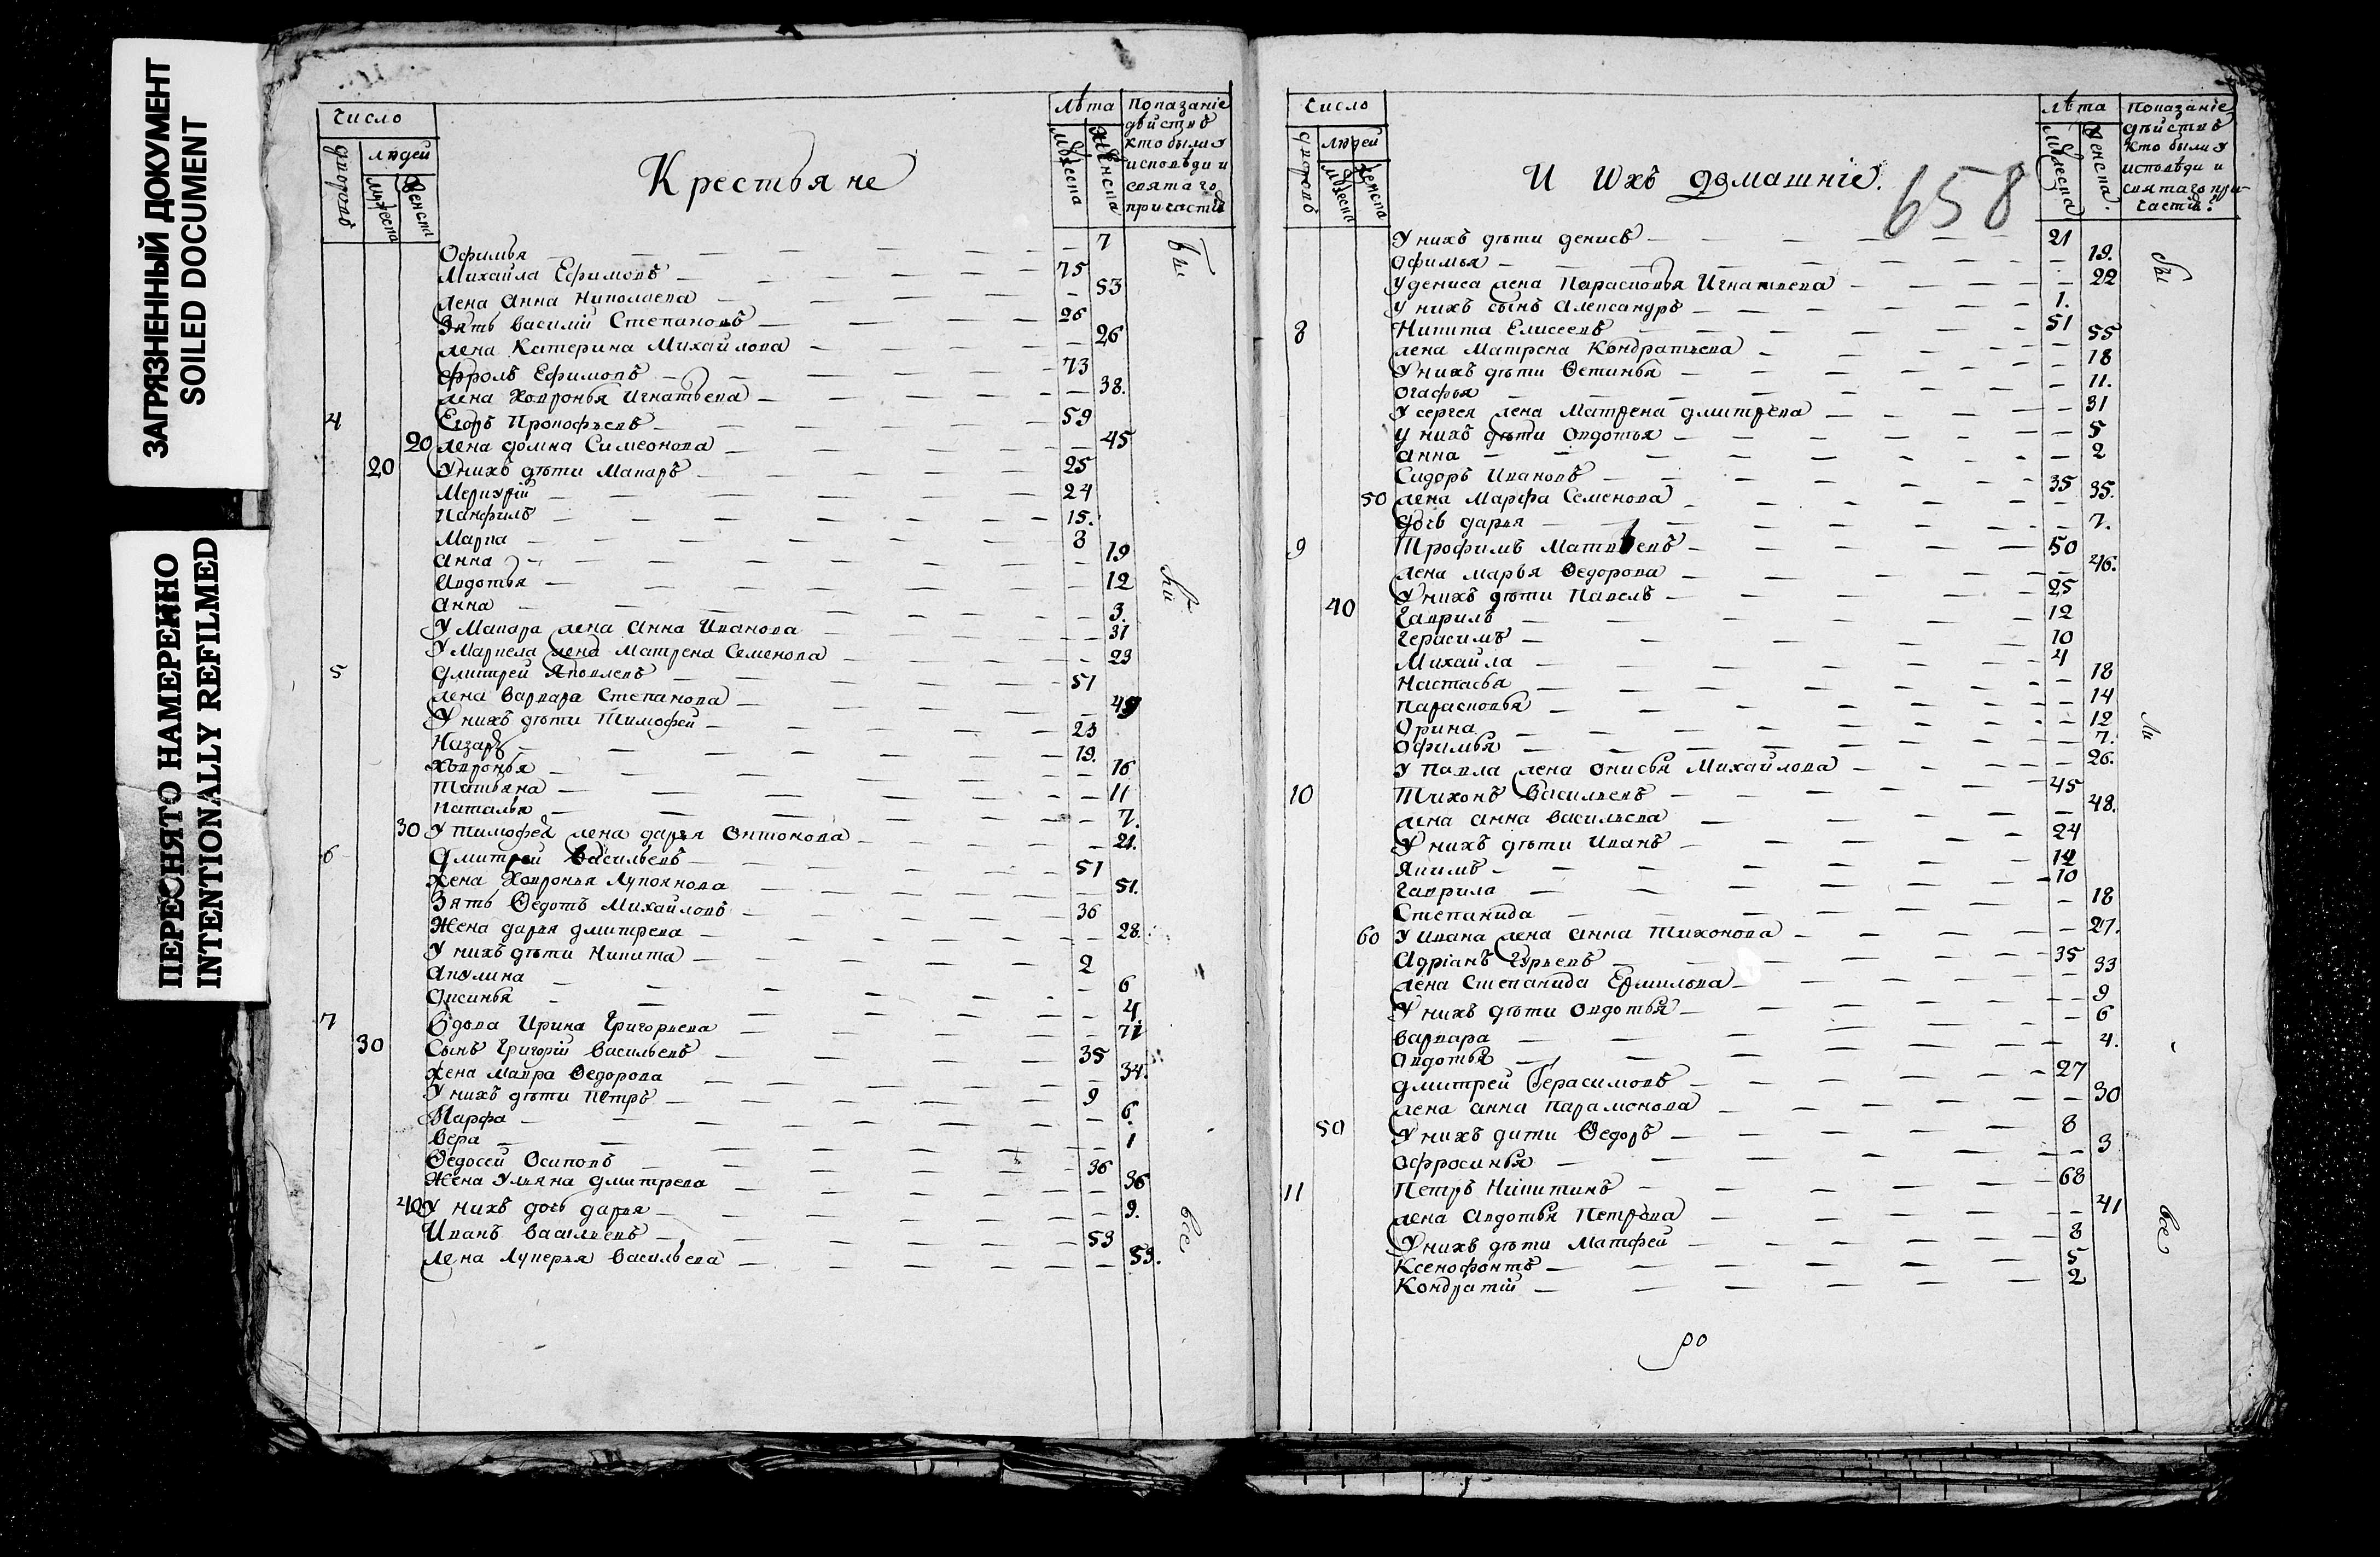 ЗАГРЯЗНЕННЫЙ ДОКУМЕНТ
SOILED DOCUMENT
ПЕРЕСНЯТО НАМЕРЕННО
INTENTIONALLY REFILMED
Число
дворовъ
людей
мужеска
женска
Крестьяне
лѣта
мужеска
женска
Показаніе
действъ
кто были у
исповѣди и
святаго
причастія
Офимья 7
Михайла Ефимовъ 75
жена Анна Николаева 53
Зять Василий Степановъ 26
жена Катерина Михайлова 26
Фролъ Ефимовъ 73
жена Ховронья Игнатьева 38.
4 Егоръ Прокофьевъ 59
20 жена Домна Симеонова 45
20 У нихъ дѣти Макаръ 25
Меркурій 24
Панфилъ 15.
Марка 8
Анна 19
Авдотья 12
Анна 3.
У Макара жена Анна Иванова 31
У Маркела жена Матрена Семенова 23
5 Дмитрей Яковлевъ 51
жена Варвара Степанова 49
У нихъ дѣти Тимофей 23
Назаръ 19.
Ховронья 16
Татьяна 11
Наталья 7.
30 У Тимофея жена Дарья Онтонова 21.
6 Дмитрей Васильевъ 51
жена Ховронья Лукоянова 51.
Зять Ѳедотъ Михайловъ 36
Жена Дарья Дмитрева 28.
У нихъ дѣти Никита 2
Акулина 6
Аксинья 4.
7 Вдова Ирина Григорьева 71
30 Сынъ Григорій Васильевъ 35
жена Мавра Ѳедорова 34.
У нихъ дѣти Петръ 9
Марфа 6.
Вера 1
Ѳедосей Осиповъ 36
Жена Ульяна Дмитрева 36
40 У нихъ дочь Дарья 9.
Иванъ Васильевъ 53
Жена Лукерья Васильева 53.
бы
ли
все
Число
дворовъ
людей
мужеска
женска
И ихъ домашніе.
658
лѣта
мужеска
женска.
Показаніе
дѣйствъ
кто были у
исповѣди и
святаго при-
частія:
У нихъ дѣти Денисъ 21
Офимья 19.
У Дениса жена Парасковья Игнатьева 22
У нихъ сынъ Александръ 1.
8 Никита Елисеевъ 51
жена Матрена Кондратьева 55
У нихъ дѣти Ѳетинья 18
Огафья 11.
У Сергея жена Матрена Дмитрева 31
У нихъ дѣти Овдотья 5
Анна 2
Сидоръ Ивановъ 35
50 жена Марфа Семенова 35.
Дочь Дарья 7.
9 Трофимъ Матвѣевъ 50
жена Марья Ѳедорова 46.
У нихъ дѣти Павелъ 25
40 Гаврилъ 12
Герасимъ 10
Михайла 4
Настасья 18
Парасковья 14
Орина 12
Офимья 7.
У Павла жена Онисья Михайлова 26.
10 Тихонъ Васильевъ 45
жена Анна Васильева 48.
У нихъ дѣти Иванъ 24
Якимъ 12
Гаврила 10
Степанида 18
60 У Ивана жена Анна Тихонова 27.
Адріанъ Гурьевъ 35
жена Степанида Ермилова 33
У нихъ дѣти Овдотья 9
Варвара 6
Овдотья 4.
Дмитрей Герасимовъ 27
жена Анна Парамонова 30
50 У нихъ дити Ѳедоръ 8
Офросинья 3
11 Петръ Никитинъ 68
жена Авдотья Петрова 41
У нихъ дѣти Матфей 8
Ксенофонтъ 5
Кондратій 2
бы
ли
все